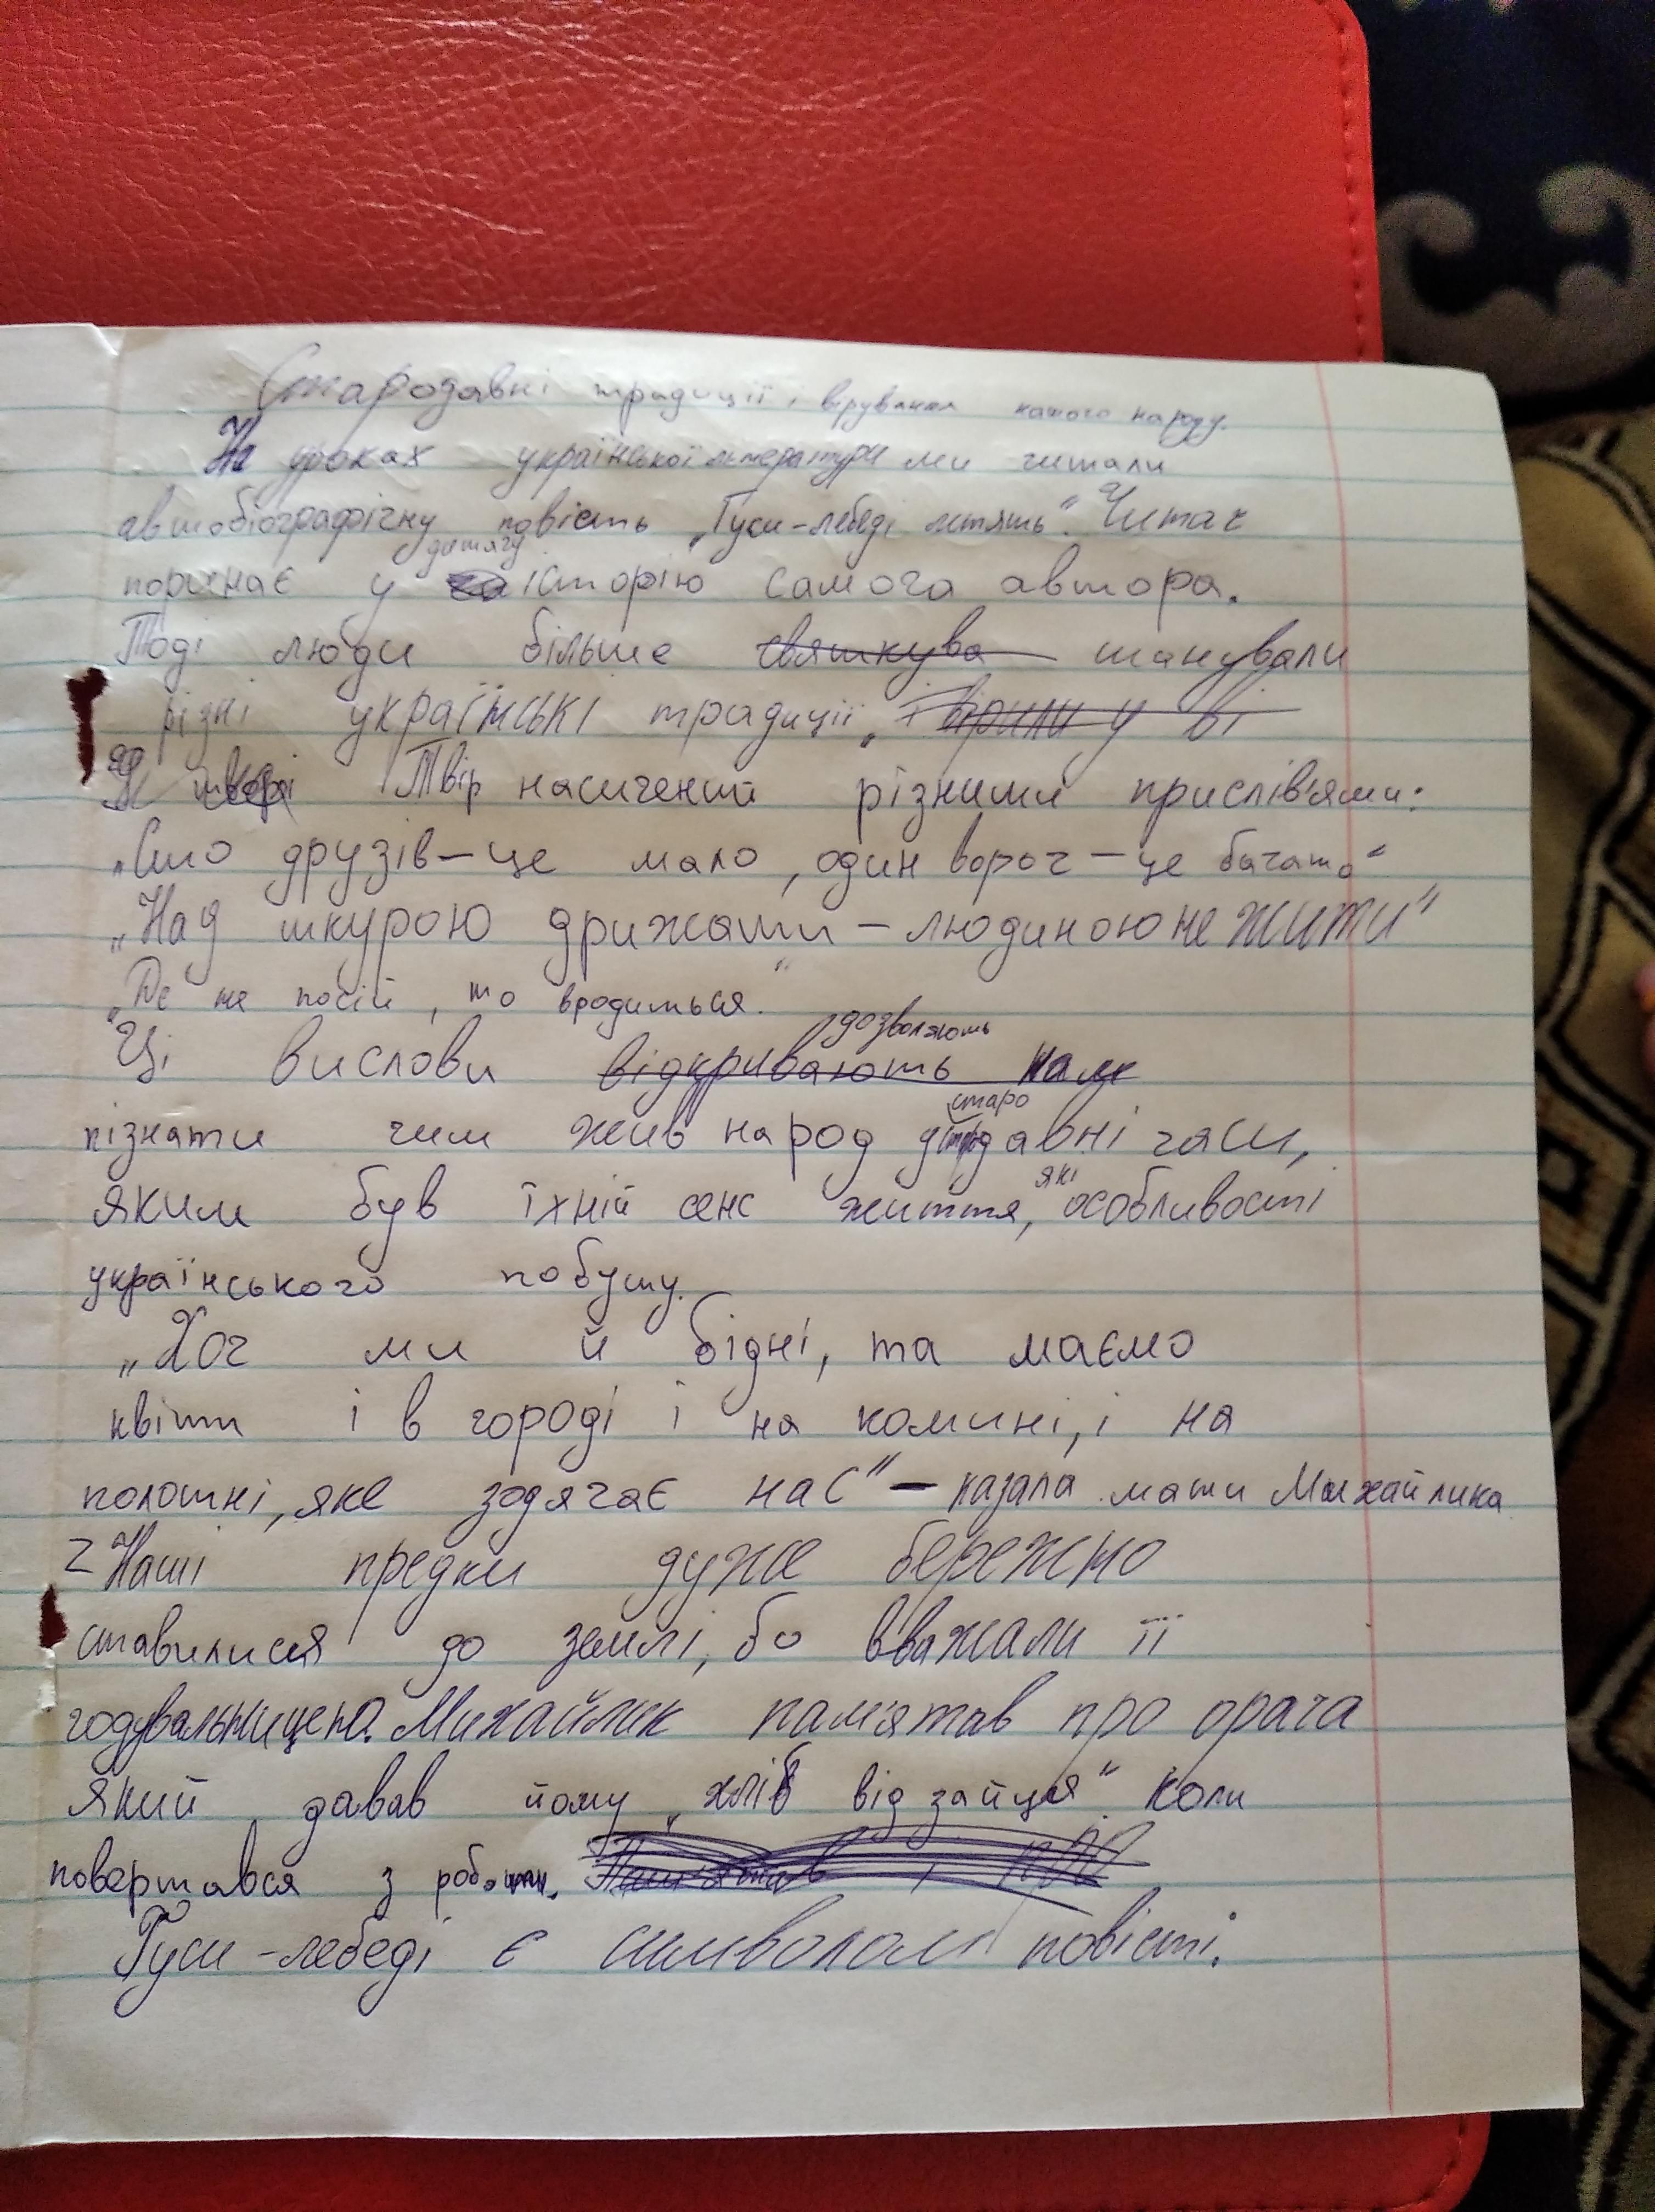 Стародавні традиції і вірування нашого народу.
На уроках української літератури ми читали
автобіографічну повість „Гуси-лебеді летять". Читач
поринає у дитячу історію самого автора.
Тоді люди більше святкува шанували
різні українські традиції, і вірили у ві
У творі Твір насичений різними прислів'ями:
„Сто друзів – це мало, один ворог – це багато"
„Над шкурою дрижати – людиною не жити"
„Де не посій, то вродиться."
Ці вислови відкривають нам дозволяють
пізнати чим жив народ стародавні часи,
яким був їхній сенс життя, які особливості
українського побуту.
„Хоч ми й бідні, та маємо
квіти і в городі і на комині, і на
полотні, яке зодягає нас" – казала мати Михайлика
Z Наші предки дуже бережно
ставилися до землі, бо вважали її
годувальницею. Михайлик пам'ятав про орача
який давав йому „хліб від зайця" коли
повертався з роботи.
Гуси-лебеді є символом повісті.